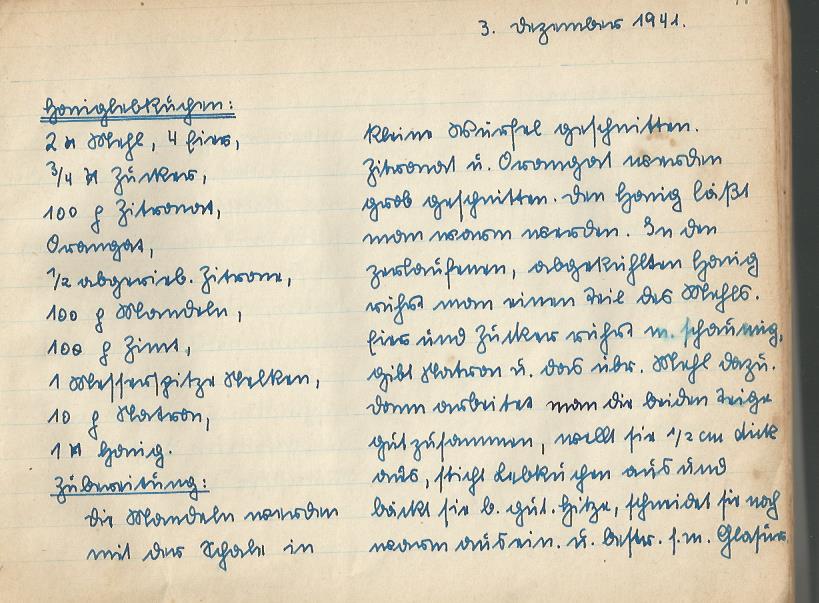 3. Dezember 1941.
Honiglebkuchen:
2 ℔ Mehl, 4 Eier,
3/4 ℔ Zucker,
100 g Zitronat,
Orangat,
1/2 abgerieb. Zitrone,
100 g Mandeln,
100 g Zimt,
1 Messerspitze Nelken,
10 g Natron,
1 ℔ Honig.
Zubereitung:
Die Mandeln werden
mit der Schale in
kleine Würfel geschnitten.
Zitronat u. Orangat werden
grob geschnitten. Den Honig läßt
man warm werden. In den
zerlaufenen, abgekühlten Honig
rührt man einen Teil des Mehls.
Eier und Zucker rührt m. schaumig,
gibt Natron u. das übr. Mehl dazu.
Dann arbeitet man die beiden Teige
gut zusammen, wellt sie 1/2 cm dick
aus, sticht Lebkuchen aus und
bäckt sie b. gut. Hitze, schneidet sie noch
warm ausein. u. bestr. s. m. Glasur.